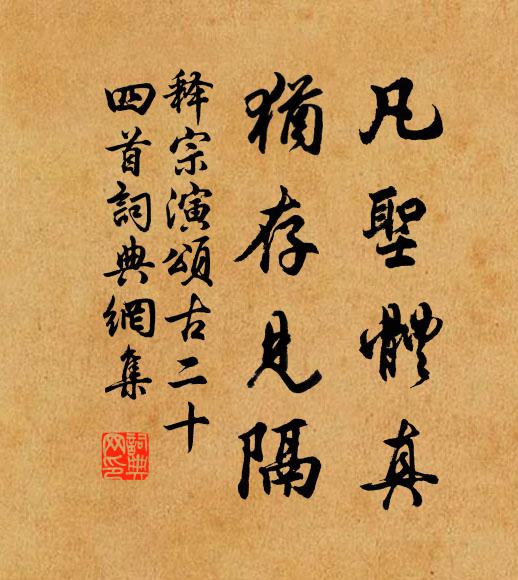 凡聖體真
猶存見隔
释宗演頌古二十
四首詞典網集
詞典网印